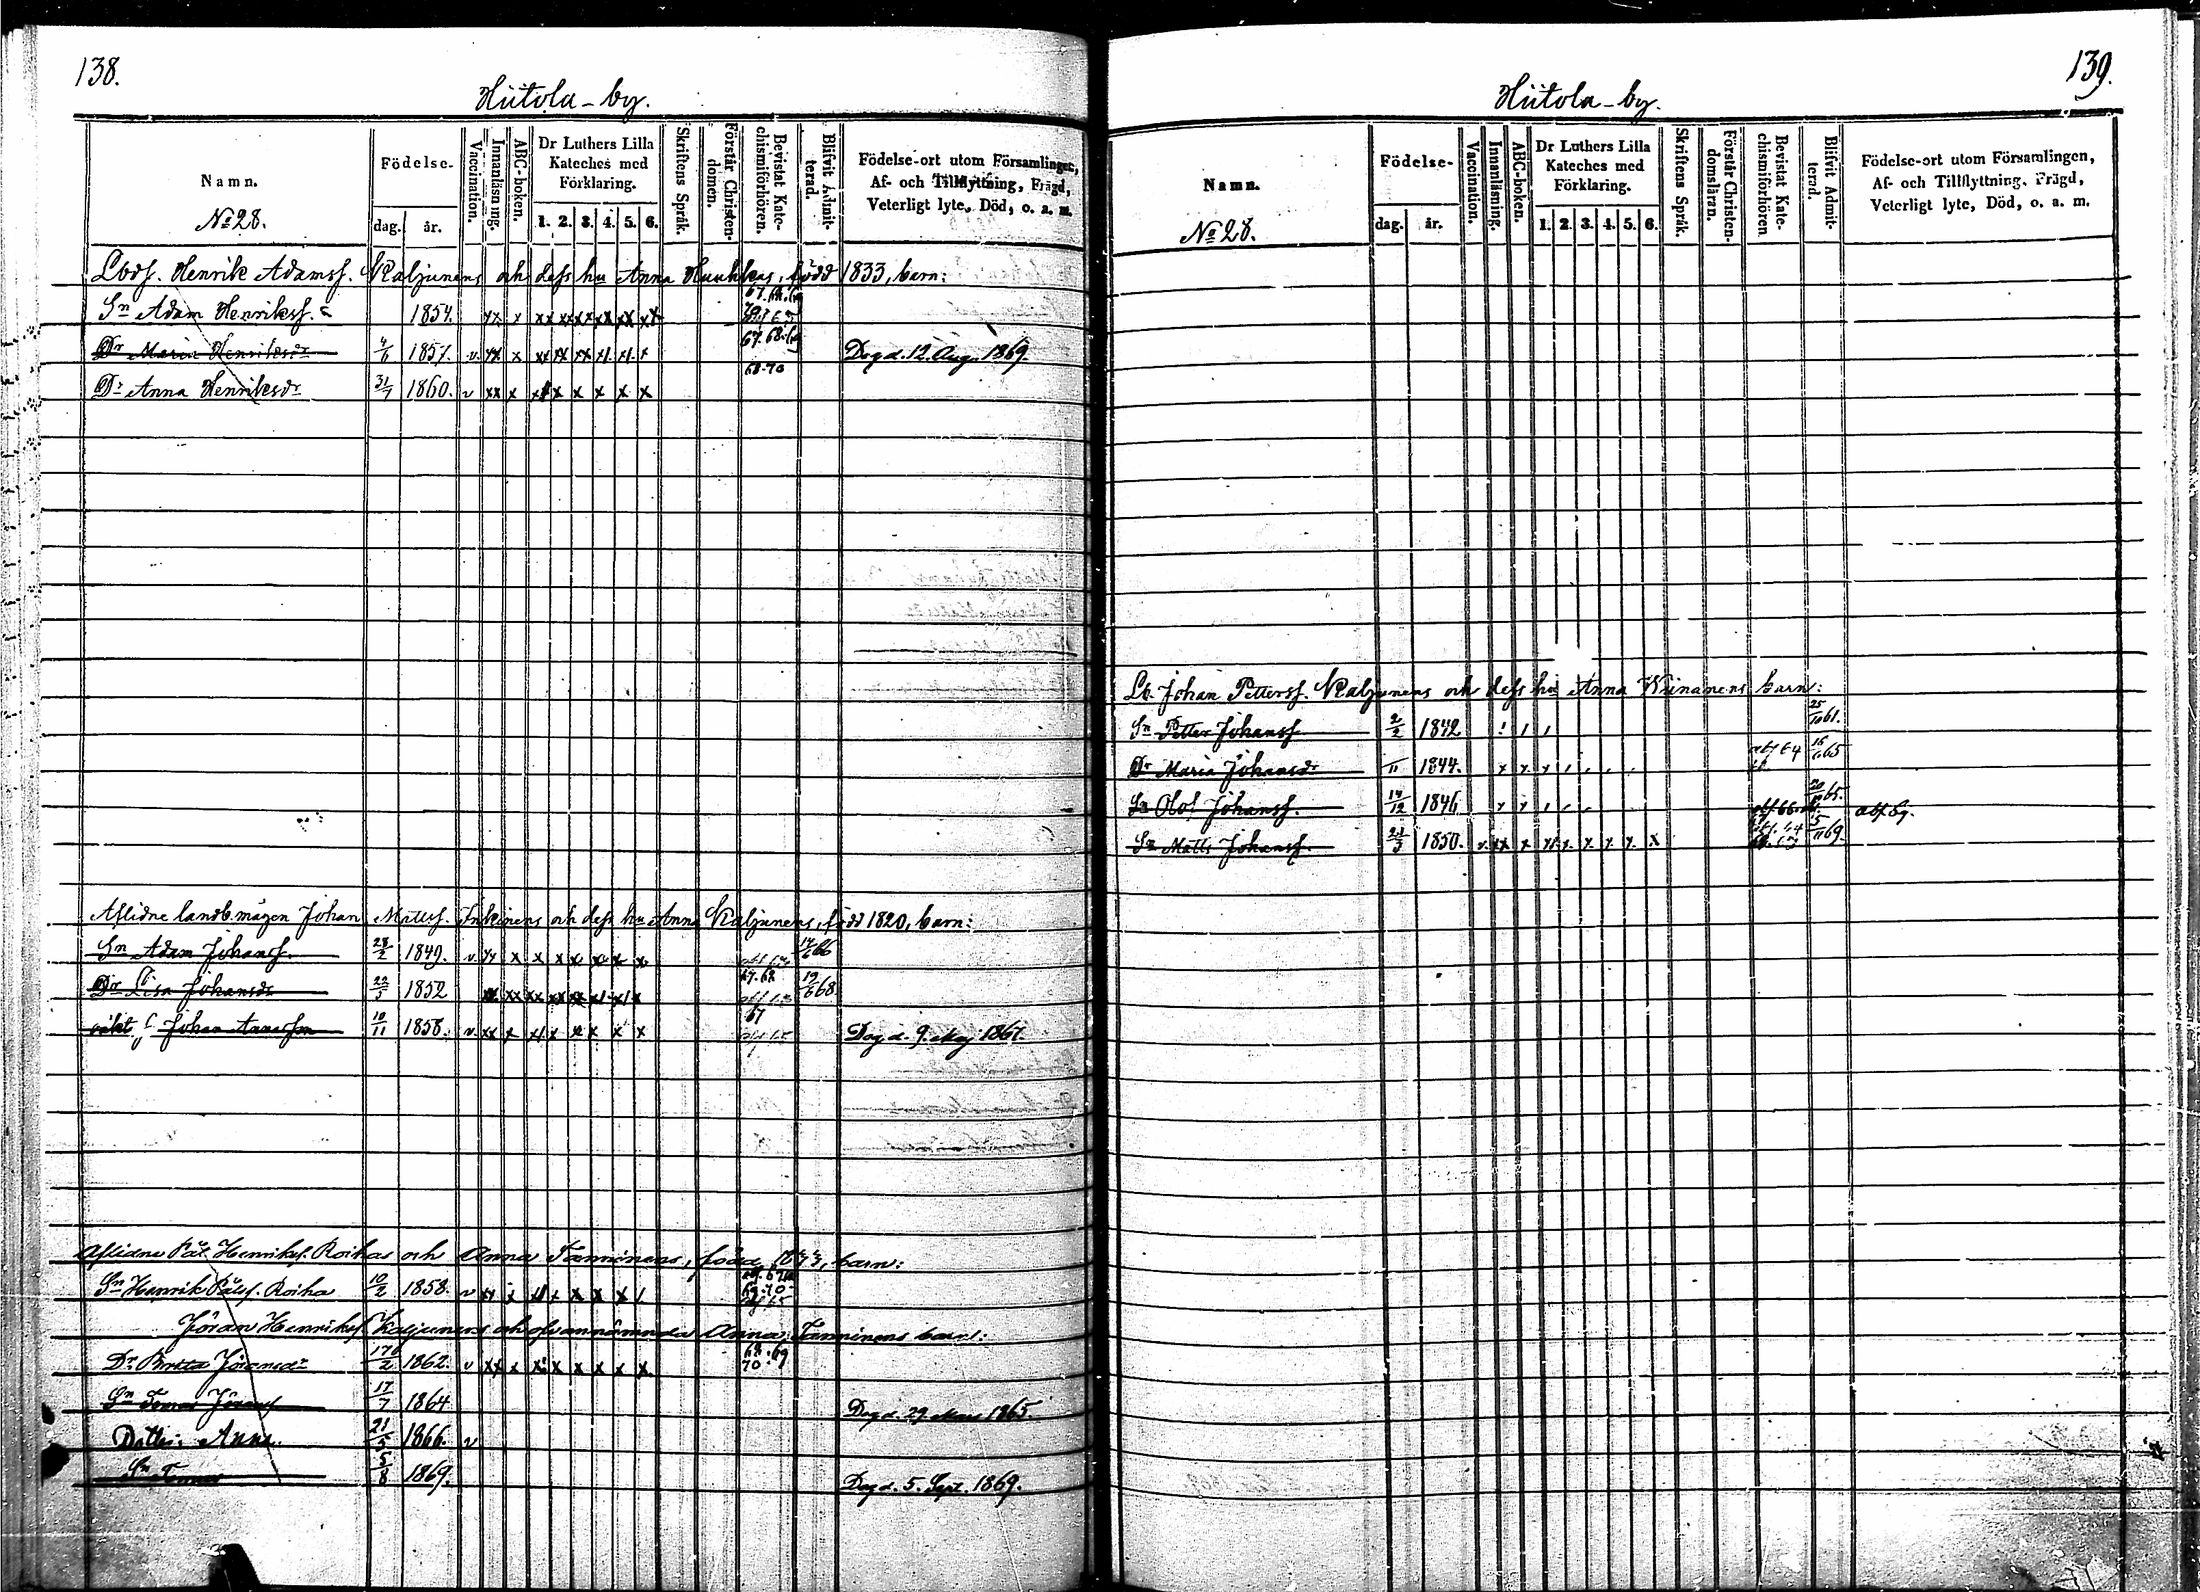 138.
Hiitola-by.
Namn.
No 28.
Födelse-
dag.
år.
Vaccination.
Innanläsning.
ABC-boken.
Dr Luthers Lilla
Kateches med
Förklaring.
1. 2. 3. 4. 5. 6.
Skriftens Språk.
Förstår Christen-
domen.
Bevistat Kate-
chismiförhören.
Blifvit Admit-
terad.
Födelse-ort utom Församlingen,
Af- och Tillflyttning, Frägd,
Veterligt lyte, Död, o. a. m.
Henrik Adamss. Kaljunens och dess hu Anna född 1833, barn:
Sn Adam Henrikss. 1854.
Dr Maria Henriksdr 4/6 1857. v Dog d. 12. Aug. 1869.
Dr Anna Henriksdr 31/7 1860. v 68.70
Aflidne landb.mågen Johan Mattss. Inkinens och dess hu Anna Kaljunens, född 1820, barn:
Sn Adam Johanss. 28/2 1849. v
Dr Lisa Johansdr 22/3 1852 67.68 19/6 68
Johan 10/11 1858. v 67 Dog d. 9. Maj 1867.
Aflidne Pål Henrikss. Roihas och Anna Tanninens, född barn:
Sn Henrik Pålss. Roiha 10/2 1858. v
Jöran Henrikss Kaljunens och ofvannämnda Anna Tanninens barn:
Dr Britta Jöransdr 17/2 1862. v 68.69
70
Sn Tomas Jöranss 17/7 1864 Dog d. 29 Mars 1865.
Dotter Anna. 21/5 1866. v
Sn Tomas 5/8 1869. Dog d. 5. Sept. 1869.
139.
Hiitola-by.
Namn.
No 28.
Födelse-
dag.
år.
Vaccination.
Innanläsning.
ABC-boken.
Dr Luthers Lilla
Kateches med
Förklaring.
1. 2. 3. 4. 5. 6.
Skriftens Språk.
Förstår Christen-
domsläran.
Bevistat Kate-
chismiförhören.
Blifvit Admit-
terad.
Födelse-ort utom Församlingen,
Af- och Tillflyttning, Frägd,
Veterligt lyte, Död, o. a. m.
Lb. Johan Petterss. Kaljunens och dess hu Anna barn:
Sn Petter Johanss 2/2 1842 25/10 61.
Dr Maria Johansdr 1844.
Sn Olof Johanss. 14/12 1846
Sn Matts Johanss. 1850. 5/11 69.